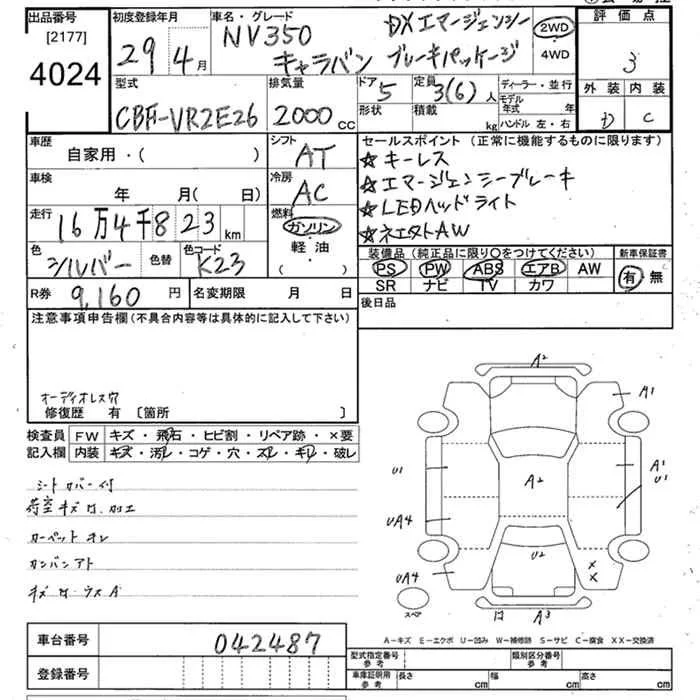 出品番号
[2177]
4024
初度登録年月
29年4月
車名・グレード
NV350
キャラバン
DXエマージェンシー
ブレーキパッケージ
2WD
4WD
評価点
3
外装 内装
D C
型式
CBF-VR2E26
排気量
2000cc
ドア
5
形状
定員
3(6)人
積載
kg
ディーラー・並行
モデル年式 年
ハンドル 左・右
車歴
自家用・( )
シフト
AT
車検
年 月(日)
冷房
AC
走行
16万4千823km
燃料
ガソリン
軽・油
( )
色
シルバー
色替
色コード
K23
R券 9,160円
名変期限 月 日
セールスポイント(正常に機能するものに限ります)
☆キーレス
☆エマージェンシーブレーキ
☆LEDヘッドライト
☆社外AW
装備品(純正品に限り○をつけてください)
PS PW ABS エアB AW
SR ナビ TV カワ
新車保証書
有 無
後日品
注意事項申告欄(不具合内容等は具体的に記入して下さい)
オーディオレス穴
修復歴 有 〔箇所 〕
検査員
記入欄
FW キズ・飛石・ヒビ割・リペア跡・×要
内装 キズ・汚レ・コゲ・穴・スレ・キレ・破レ
シートカバー付
荷室キズ凹、加工
カーペットキレ
カンバンアト
キズ凹ウスA
A2
A1
U1
A2
A1
U1
UA4
U2
UA4
×
×
スペア
凹
A3
A-キズ E-エクボ U-凹み W-補修跡 S-サビ C-腐食 XX-交換済
車台番号
042487
登録番号
型式指定番号
参考
類別区分番号
参考
車庫証明用
参考
長さ cm
幅 cm
高さ cm